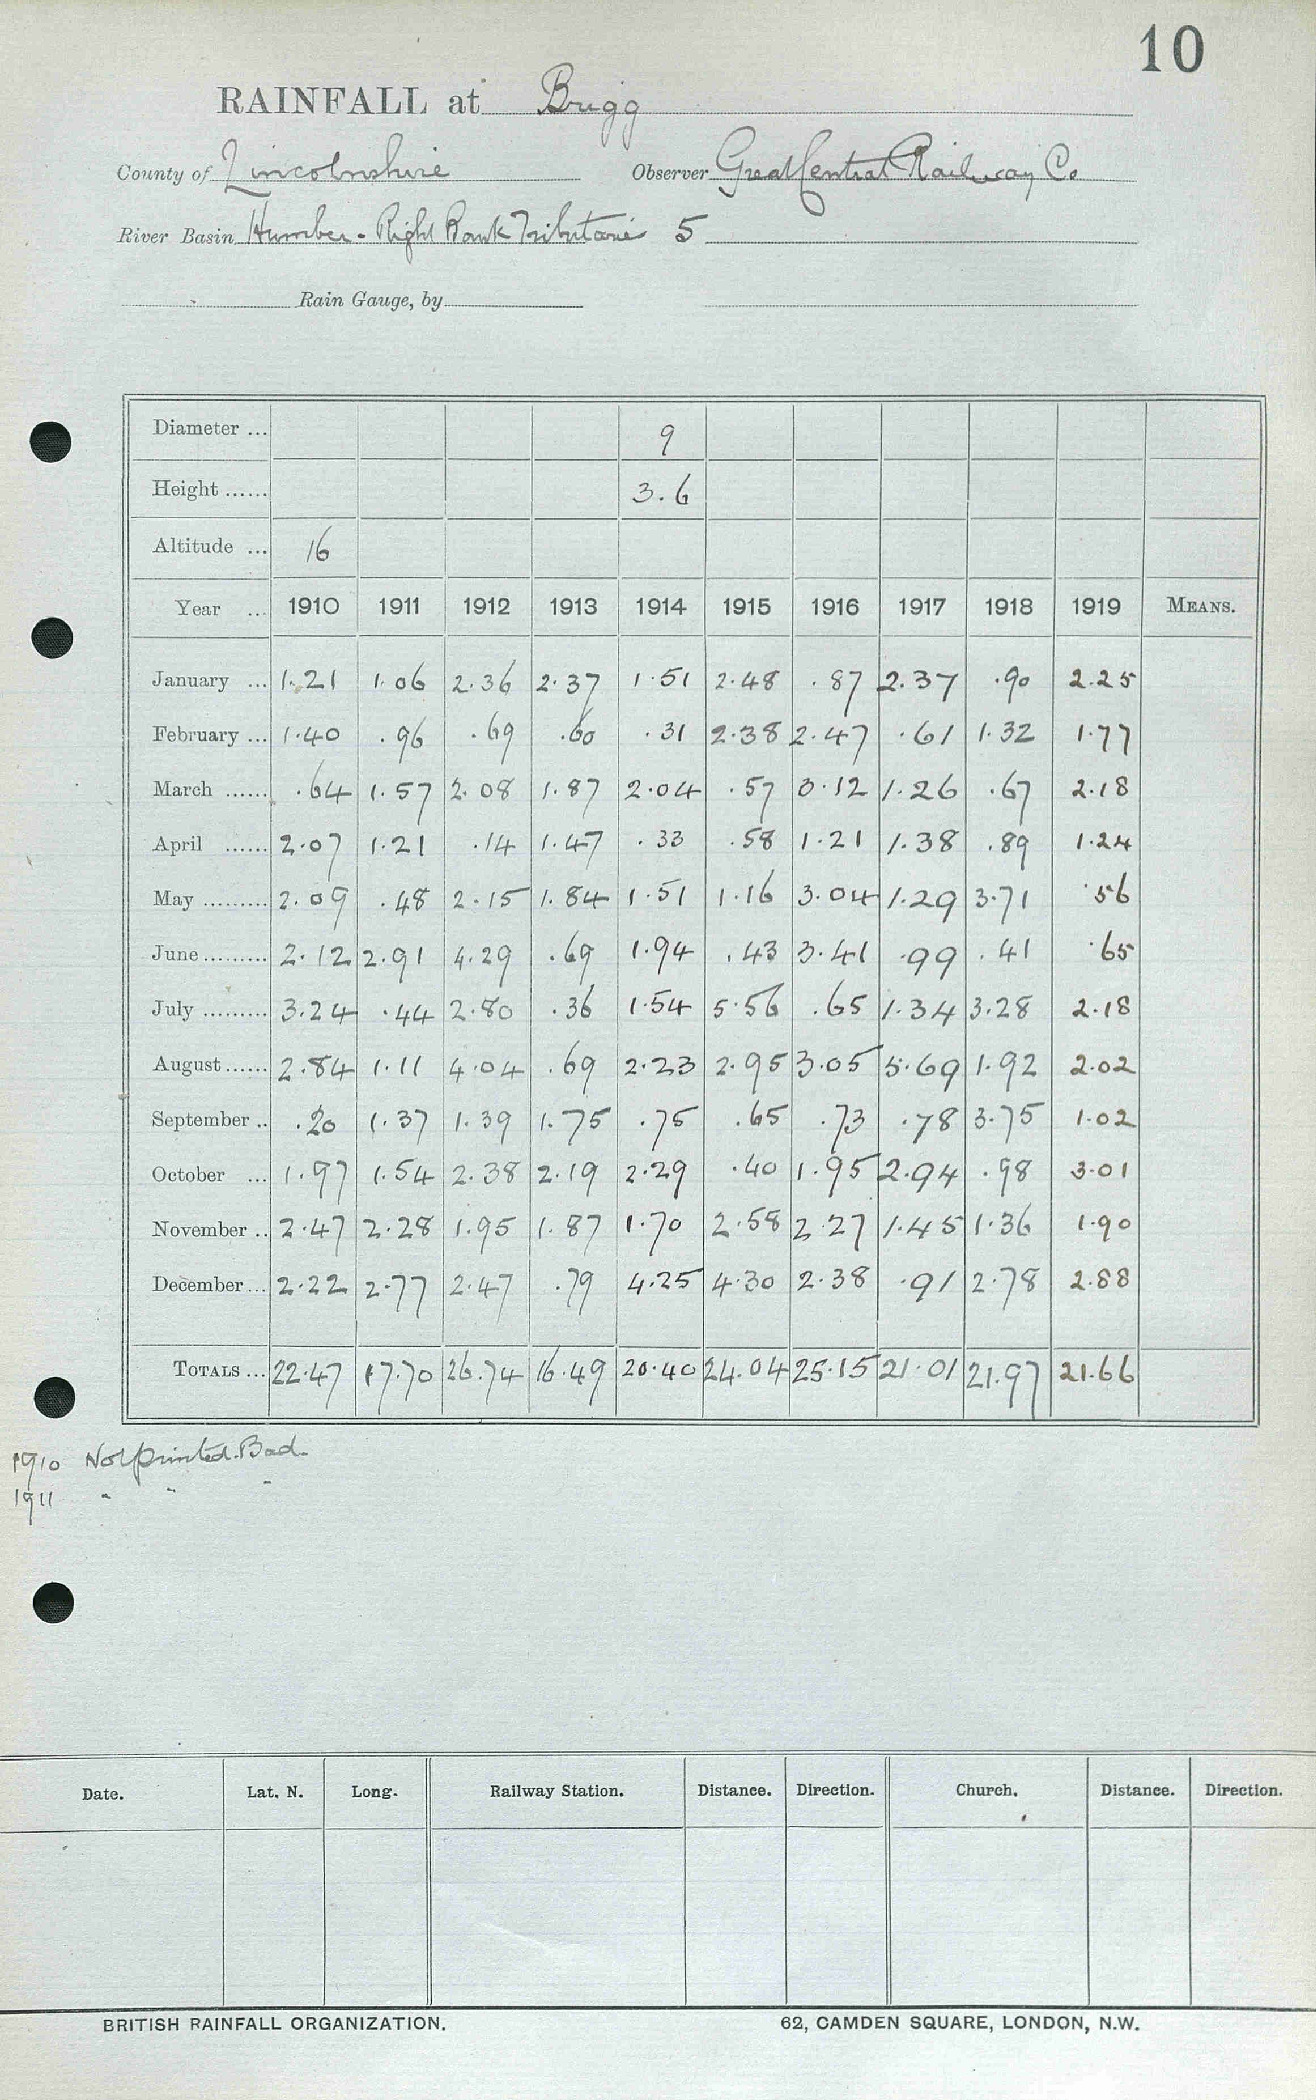 10
RAINFALL at Brigg
County of Lincolnshire Observer Great Central Railway Co
River Basin Humber - Right Bank Tributaries 5
Rain Gauge, by
Diameter ... 9
Height ...... 3.6
Altitude ... 16
Year ... 1910 1911 1912 1913 1914 1915 1916 1917 1918 1919 MEANS.
January ... 1.21 1.06 2.36 2.37 1.51 2.48 .87 2.37 .90 2.25
February ... 1.40 .96 .69 .60 .31 2.38 2.47 .61 1.32 1.77
March ...... .64 1.57 2.08 1.87 2.04 .57 3.12 1.26 .67 2.18
April ...... 2.07 1.21 .14 1.47 .33 .58 1.21 1.38 .89 1.24
May ......... 2.09 .48 2.15 1.84 1.51 1.16 3.04 1.29 3.71 .56
June ......... 2.12 2.91 4.29 .69 1.94 .43 3.41 .99 .41 .65
July ......... 3.24 .44 2.80 .36 1.54 5.56 .65 1.34 3.28 2.18
August ...... 2.84 1.11 4.04 .69 2.23 2.95 3.05 5.69 1.92 2.02
September .. .20 1.37 1.39 1.75 .75 .65 .73 .78 3.75 1.02
October ... 1.97 1.54 2.38 2.19 2.29 .40 1.95 2.94 .98 3.01
November .. 2.47 2.28 1.95 1.87 1.70 2.58 2.27 1.45 1.36 1.90
December ... 2.22 2.77 2.47 .79 4.25 4.30 2.38 .91 2.78 2.88
TOTALS ... 22.47 17.70 26.74 16.49 20.40 24.04 25.15 21.01 21.97 21.66
1910 Not printed. Bad.
1911 " " "
Date. Lat. N. Long. Railway Station. Distance. Direction. Church. Distance. Direction.
BRITISH RAINFALL ORGANIZATION. 62, CAMDEN SQUARE, LONDON, N.W.